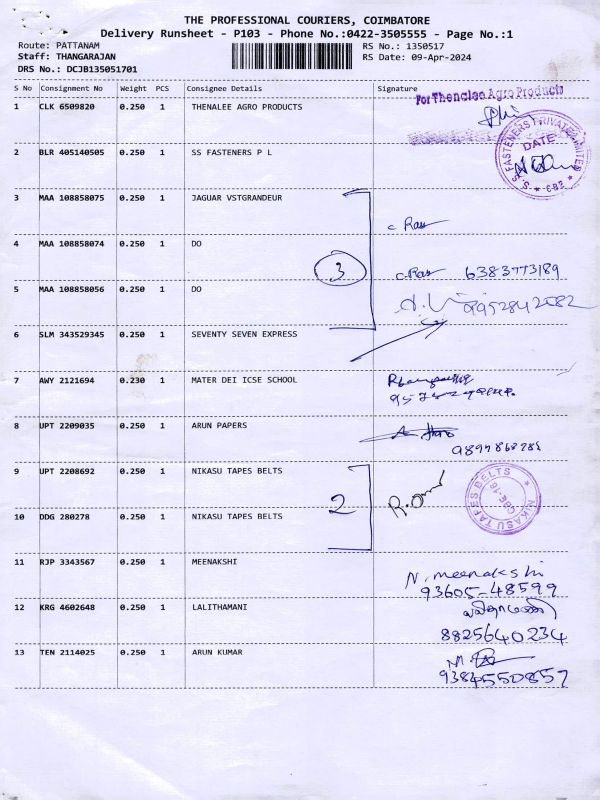 THE PROFESSIONAL COURIERS, COIMBATORE
Delivery Runsheet - P103 - Phone No.:0422-3505555 - Page No.:1
Route: PATTANAM RS No.: 1350517
Staff: THANGARAJAN RS Date: 09-Apr-2024
DRS No.: DCJB135051701
S No Consignment No Weight PCS Consignee Details Signature
For Thenalee Agro Products
1 CLK 6509820 0.250 1 THENALEE AGRO PRODUCTS
S.S. FASTENERS PRIVATE LIMITED
DATE
2 BLR 405140505 0.250 1 SS FASTENERS P L
3 MAA 108858075 0.250 1 JAGUAR VSTGRANDEUR
4 MAA 108858074 0.250 1 DO 6383773189
3
5 MAA 108858056 0.250 1 DO
6 SLM 343529345 0.250 1 SEVENTY SEVEN EXPRESS
7 AWY 2121694 0.230 1 MATER DEI ICSE SCHOOL
8 UPT 2209035 0.250 1 ARUN PAPERS
9 UPT 2208692 0.250 1 NIKASU TAPES BELTS
2
NIKASU TAPES BELTS
CBE-18
10 DDG 280278 0.250 1 NIKASU TAPES BELTS
11 RJP 3343567 0.250 1 MEENAKSHI N. meenakshi
93605-48599
12 KRG 4602648 0.250 1 LALITHAMANI
8825640234
13 TEN 2114025 0.250 1 ARUN KUMAR
9384550857